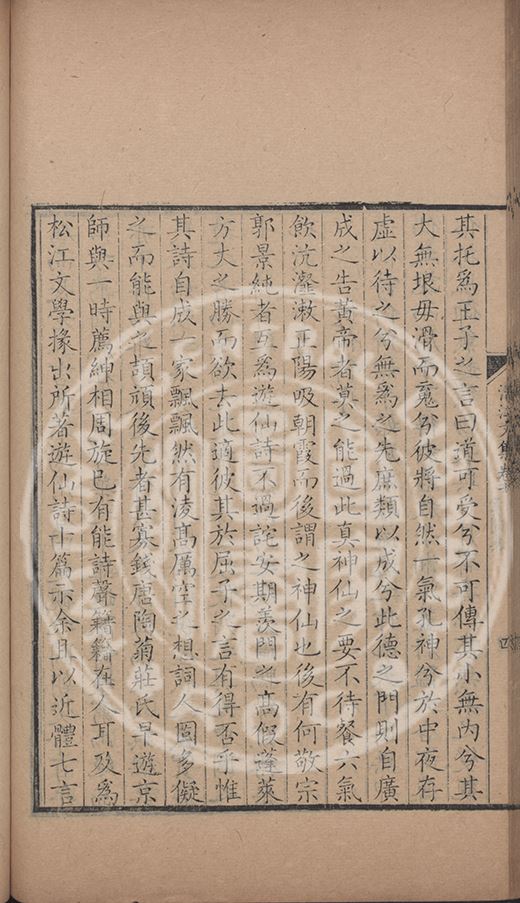 其托爲王子之言曰道可受兮不可傳其小無内兮其
大無垠毋滑而䰟兮彼將自然一氣孔神兮於中夜存
虚以待之兮無爲之先庶類以成兮此德之門則自廣
成之告黄帝者莫之能過此真神仙之要不待餐六氣
飲沆瀣漱正陽吸朝霞而後謂之神仙也後有何敬宗
郭景純者互爲遊仙詩不過詫安期羨門之高假蓬萊
方丈之勝而欲去此適彼其於屈子之言有得否乎惟
其詩自成一家飄飄然有淩髙厲空之想詞人固多儗
之而能與之頡頏後先者甚寡錢唐陶菊莊氏早遊京
師與一時薦紳相周旋已有能詩聲籍籍在人耳及爲
松江文學掾出所著遊仙詩十篇示余且以近體七言
四